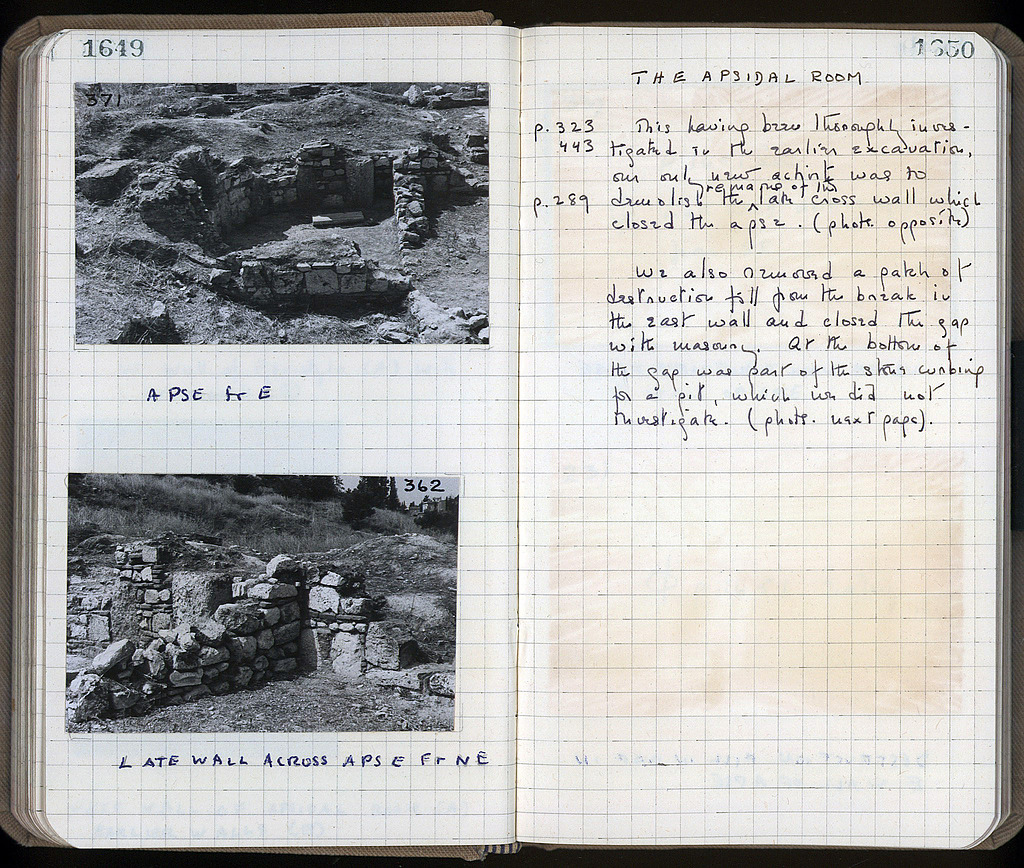 1649
371
APSE fr E
362
LATE WALL ACROSS APSE Fr NE
1650
THE APSIDAL ROOM
p. 323 This having been thoroughly inves-
443 tigated in the earlier excavation,
our only new activity was to
remains of the
p. 289 demolish the late cross wall which
closed the apse. (phot. opposite)
We also removed a patch of
destruction fill from the break in
the east wall and closed the gap
with masonry. At the bottom of
the gap was part of the stone curbing
for a pit, which we did not
investigate. (phot. next page).